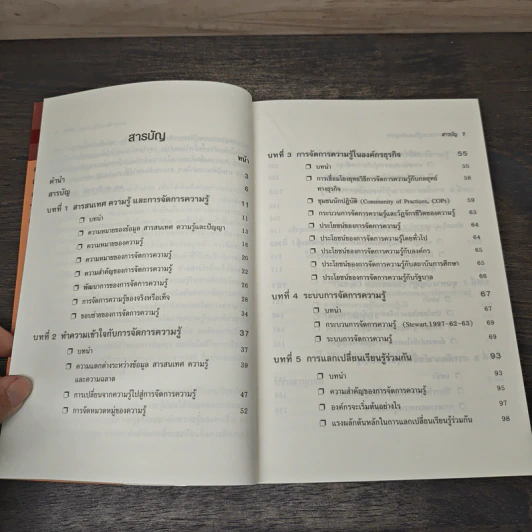 สารบัญ
หน้า
คำนำ 3
สารบัญ 6
บทที่ 1 สารสนเทศ ความรู้ และการจัดการความรู้ 11
❒ บทนำ 11
❒ ความหมายของข้อมูล สารสนเทศ ความรู้และปัญญา 13
❒ ความหมายของความรู้ 16
❒ ความหมายของการจัดการความรู้ 20
❒ ความสำคัญของการจัดการความรู้ 22
❒ พัฒนาการของการจัดการความรู้
❒ การจัดการความรู้ของจริงหรือเท็จ
❒ ขอบข่ายของการจัดการความรู้
บทที่ 2 ทำความเข้าใจกับการจัดการความรู้ 37
❒ บทนำ 37
❒ ความแตกต่างระหว่างข้อมูล สารสนเทศ ความรู้ 39
และความฉลาด
❒ การเปลี่ยนจากความรู้ไปสู่การจัดการความรู้ 47
❒ การจัดหมวดหมู่ของความรู้ 52
สารบัญ 7
บทที่ 3 การจัดการความรู้ในองค์กรธุรกิจ 55
❒ บทนำ 55
❒ การเชื่อมโยงยุทธวิธีการจัดการความรู้กับกลยุทธ์ 56
ทางธุรกิจ
❒ ชุมชนนักปฏิบัติ (Community of Practices, COPs) 59
❒ กระบวนการจัดการความรู้และวัฏจักรชีวิตของความรู้ 63
❒ ประโยชน์ของการจัดการความรู้ 64
❒ ประโยชน์ของการจัดการความรู้โดยทั่วไป 64
❒ ประโยชน์ของการจัดการความรู้กับองค์กร 65
❒ ประโยชน์ของการจัดการความรู้กับสถาบันการศึกษา 65
❒ ประโยชน์ของการจัดการความรู้กับรัฐบาล 66
บทที่ 4 ระบบการจัดการความรู้ 67
❒ บทนำ 67
❒ กระบวนการจัดการความรู้ (Stewar.1997-62-63) 69
❒ ระบบการจัดการความรู้ 69
บทที่ 5 การแลกเปลี่ยนเรียนรู้ร่วมกัน 93
❒ บทนำ 93
❒ ความสำคัญของการจัดการความรู้ 95
❒ องค์กรจะเริ่มต้นอย่างไร 97
❒ แรงผลักดันหลักในการแลกเปลี่ยนเรียนรู้ร่วมกัน 98